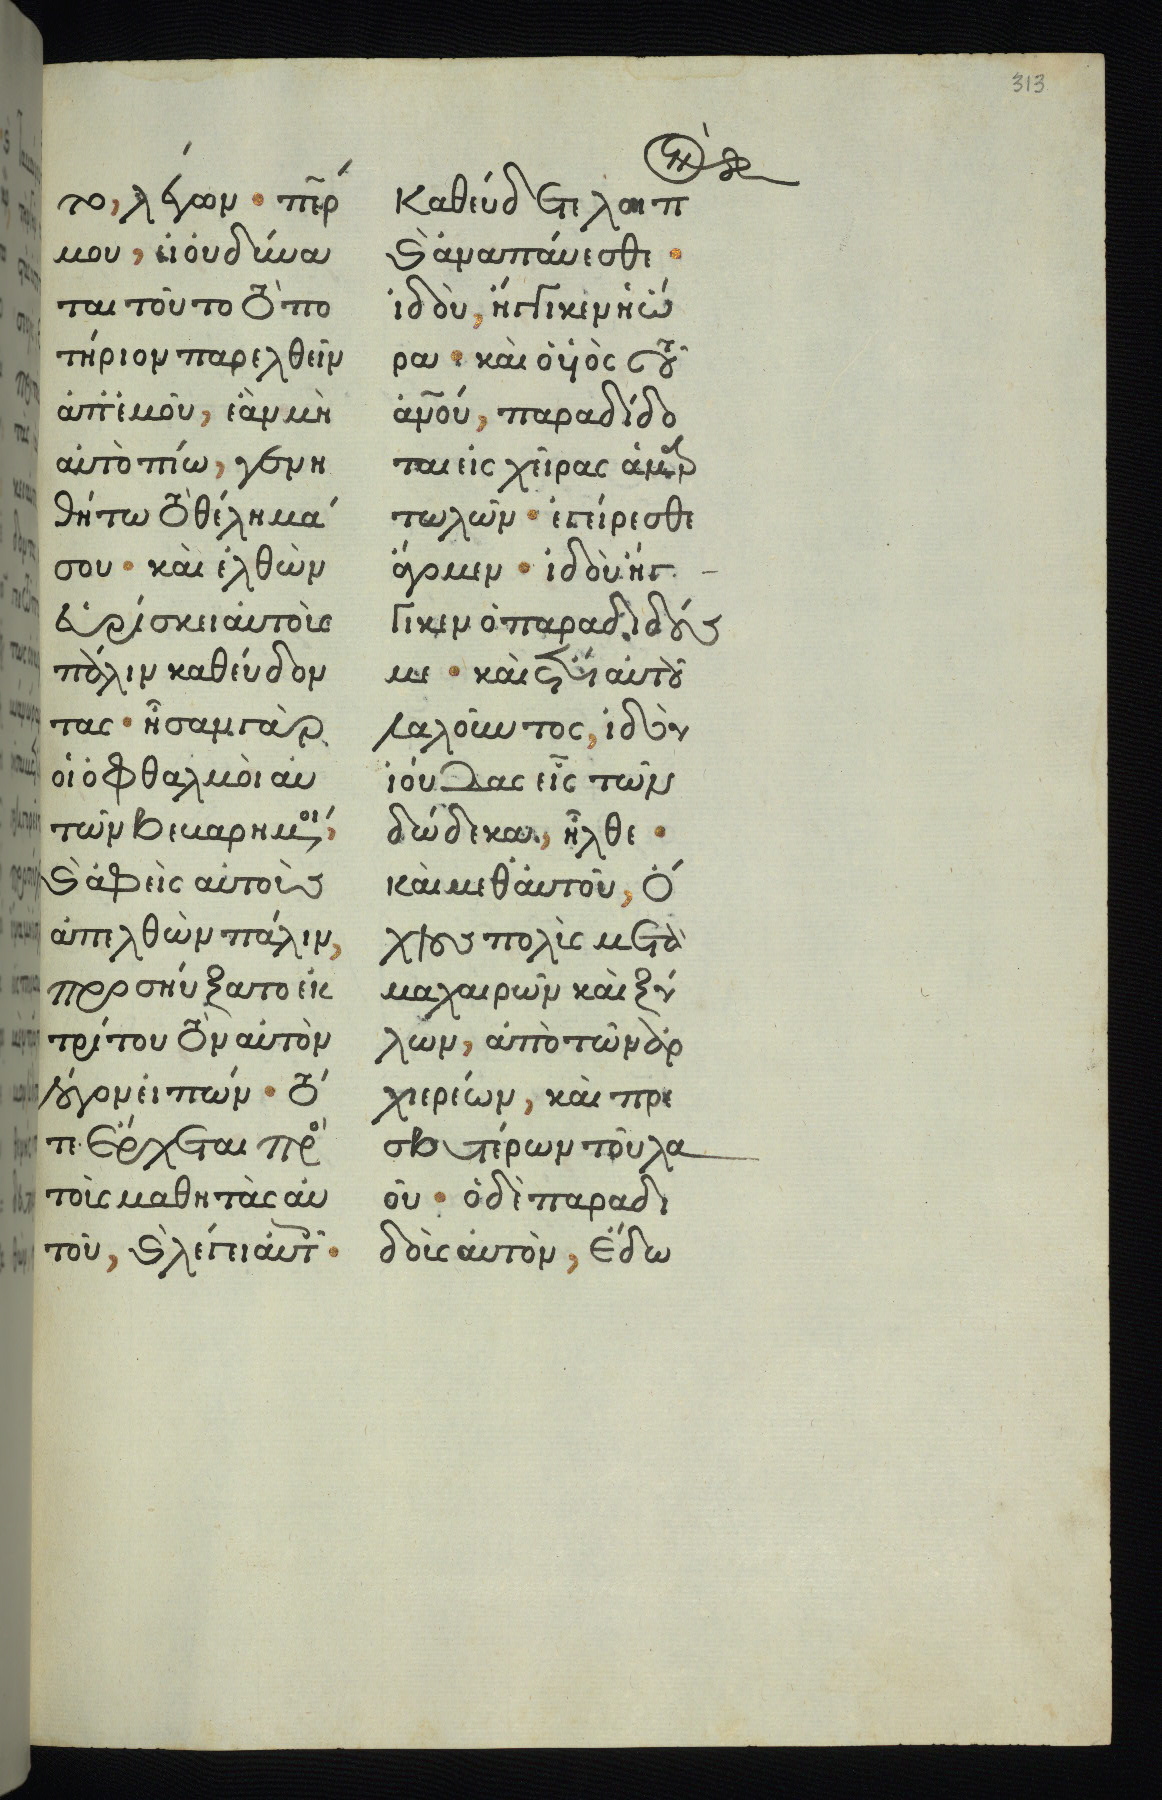 313
το, λέγων · πε̅ρ
μου, εἰ οὐ δύνα
ται τοῦτο τὸ πο
τήριον παρελθεῖν
ἀπ' ἐμοῦ, ἐὰν μὴ
αὐτὸ πίω, γενη
θήτω τὸ θέλημά
σου · καὶ ἐλθὼν
εὑρίσκει αὐτοὺς
πάλιν καθεύδον
τας · ἦσαν γὰρ
οἱ ὀφθαλμοὶ αὐ
τῶν βεβαρημένοι,
καὶ ἀφεὶς αὐτοὺς
ἀπελθὼν πάλιν,
προσηύξατο ἐκ
τρίτου τὸν αὐτὸν
λόγον εἰπών · τό
τε ἔρχεται πρὸς
τοὺς μαθητὰς αὐ
τοῦ, καὶ λέγει αὐτοῖς ·
Καθεύδετε λοιπ
καὶ ἀναπαύεσθε ·
ἰδοὺ, ἤγγικεν ἡ ὥ
ρα · καὶ ὁ υἱὸς τοῦ
ἀν̅ου, παραδίδο
ται εἰς χεῖρας ἁμαρ
τωλῶν · ἐγείρεσθε
ἄγωμεν · ἰδοὺ ἤγ
γικεν ὁ παραδιδούς
με · καὶ ἔτι αὐτοῦ
λαλοῦντος, ἰδοὺ
ἰούδας εἷς τῶν
δώδεκα, ἦλθε ·
καὶ μεθ' αὐτοῦ, ὄ
χλος πολὺς μετὰ
μαχαιρῶν καὶ ξύ
λων, ἀπὸ τῶν ἀρ
χιερέων, καὶ πρε
σβυτέρων τοῦ λα
οῦ · ὁ δὲ παραδι
δοὺς αὐτὸν, ἔδω